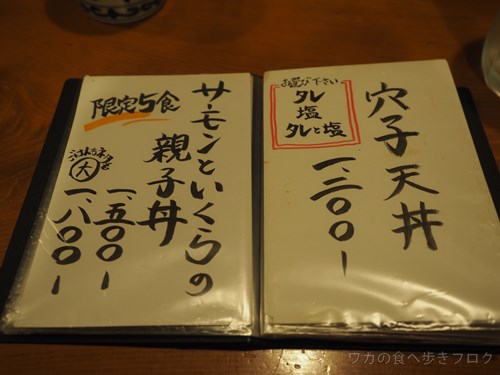 穴子天丼
お選び下さい
タレ
塩
タレと塩
一、二〇〇ー
サーモンといくらの
親子丼
限定5食
一、五〇〇ー
大
一、八〇〇ー
ワカの食べ歩きブログ